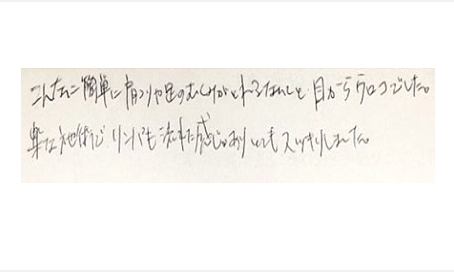 こんなに簡単に肩コリや足のむくみがとれるなんてと目からウロコでした。
楽な姿勢でリンパも流れた感じがありとてもスッキリしました。